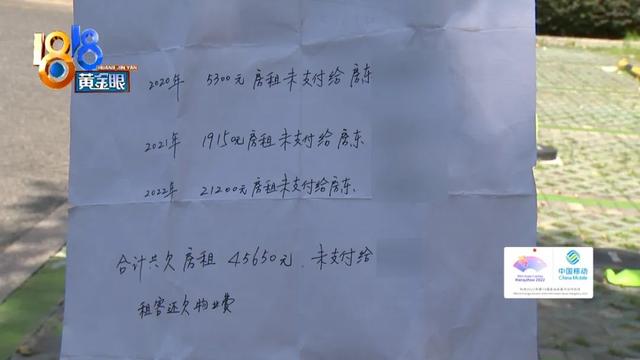 1818
黄金眼
2020年 5300元房租未支付给房东
2021年 19150元房租未支付给房东
2022年 21200元房租未支付给房东.
合计共欠房租 45650元.未支付给
租客还欠物业费
Hangzhou 2022
中国移动
China Mobile